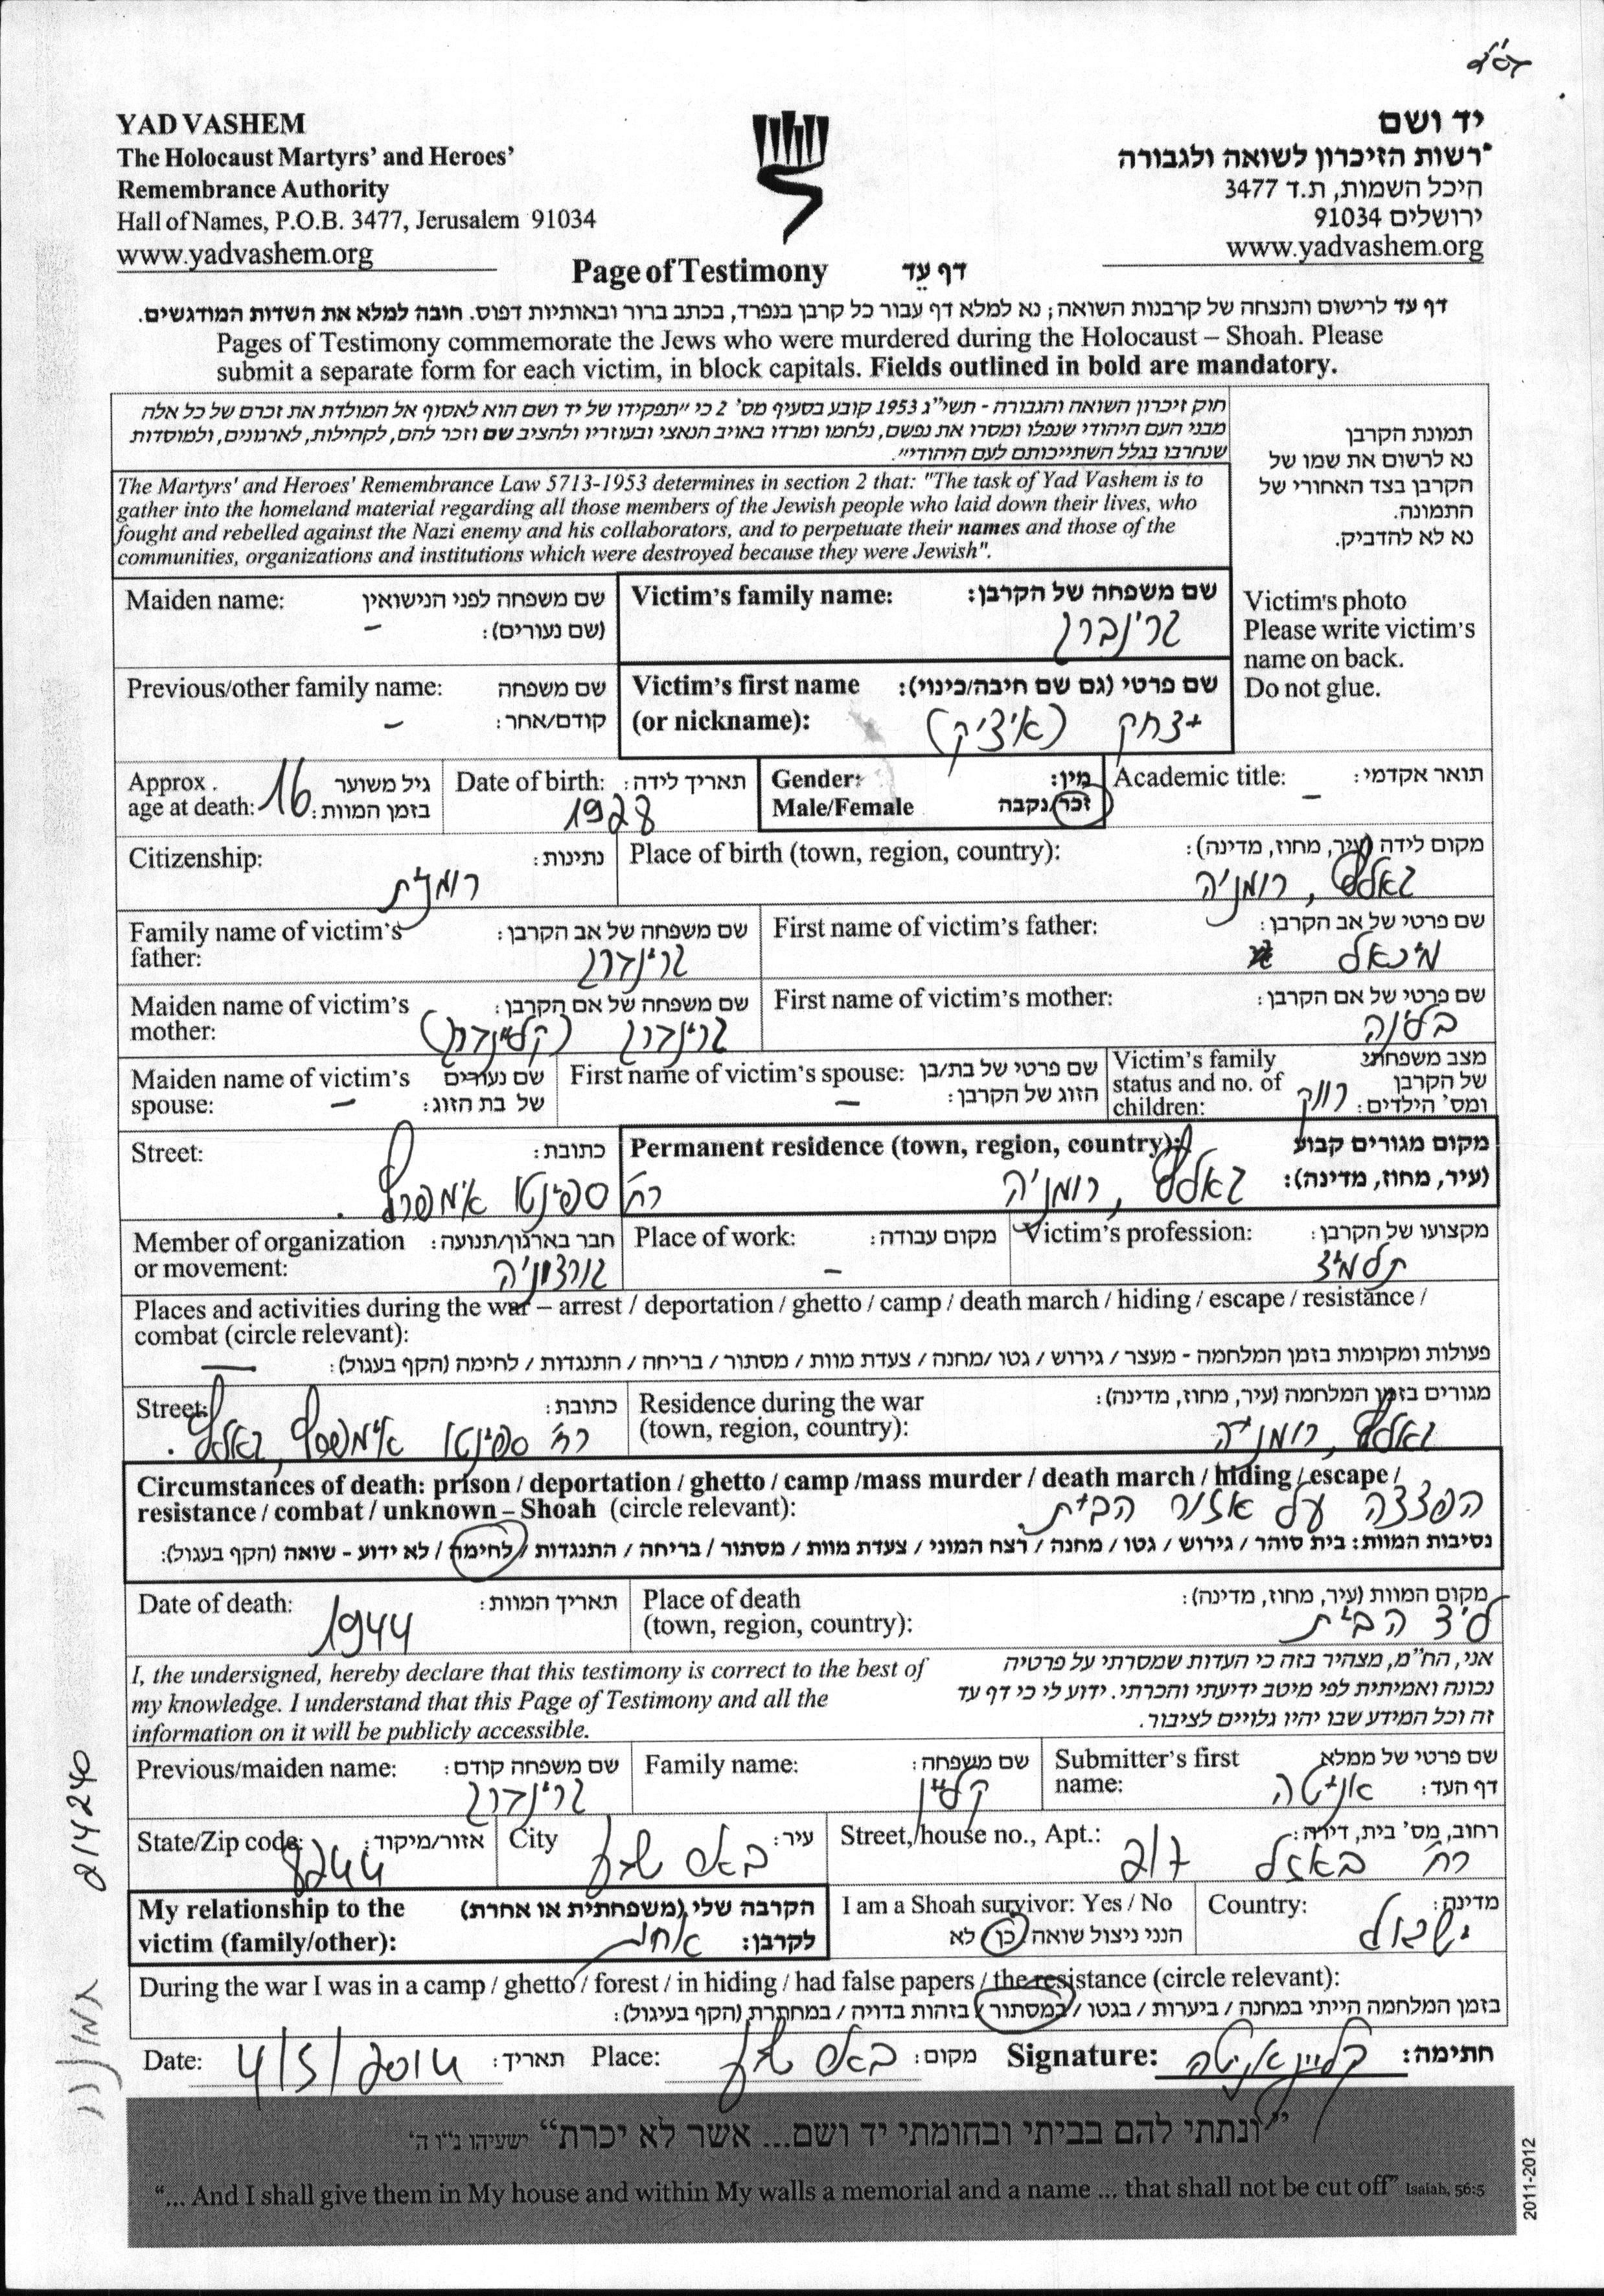 בס"ד
YAD VASHEM
The Holocaust Martyrs' and Heroes'
Remembrance Authority
Hall of Names, P.O.B. 3477, Jerusalem 91034
www.yadvashem.org
יד ושם
רשות הזיכרון לשואה ולגבורה
היכל השמות, ת.ד 3477
ירושלים 91034
www.yadvashem.org
Page of Testimony דף עֵד
דף עד לרישום והנצחה של קרבנות השואה; נא למלא דף עבור כל קרבן בנפרד, בכתב ברור ובאותיות דפוס. חובה למלא את השדות המודגשים.
Pages of Testimony commemorate the Jews who were murdered during the Holocaust – Shoah. Please
submit a separate form for each victim, in block capitals. Fields outlined in bold are mandatory.
חוק זיכרון השואה והגבורה - תשי"ג 1953 קובע בסעיף מס' 2 כי "תפקידו של יד ושם הוא לאסוף אל המולדת את זכרם של כל אלה
מבני העם היהודי שנפלו ומסרו את נפשם, נלחמו ומרדו באויב הנאצי ובעוזריו ולהציב שם וזכר להם, לקהילות, לארגונים, ולמוסדות
שנחרבו בגלל השתייכותם לעם היהודי".
The Martyrs' and Heroes' Remembrance Law 5713-1953 determines in section 2 that: "The task of Yad Vashem is to
gather into the homeland material regarding all those members of the Jewish people who laid down their lives, who
fought and rebelled against the Nazi enemy and his collaborators, and to perpetuate their names and those of the
communities, organizations and institutions which were destroyed because they were Jewish".
תמונת הקרבן
נא לרשום את שמו של
הקרבן בצד האחורי של
התמונה.
נא לא להדביק.
Victim's photo
Please write victim's
name on back.
Do not glue.
Victim's family name: שם משפחה של הקרבן:
גרינברג
Maiden name: שם משפחה לפני הנישואין
(שם נעורים): –
Victim's first name שם פרטי (גם שם חיבה/כינוי):
(or nickname): יצחק (איציק)
Previous/other family name: שם משפחה
קודם/אחר: –
Approx. גיל משוער
age at death: 16 בזמן המוות:
Date of birth: תאריך לידה:
1928
Gender: מין:
Male/Female זכר/נקבה
Academic title: תואר אקדמי:
–
Citizenship: נתינות:
רומנית
Place of birth (town, region, country): מקום לידה (עיר, מחוז, מדינה):
גאלץ, רומניה
Family name of victim's שם משפחה של אב הקרבן:
father: גרינברג
First name of victim's father: שם פרטי של אב הקרבן:
מיכאל
Maiden name of victim's שם משפחה של אם הקרבן:
mother: גרינברג
First name of victim's mother: שם פרטי של אם הקרבן:
Maiden name of victim's שם נעורים
spouse: – של בת הזוג:
First name of victim's spouse: שם פרטי של בת/בן
– הזוג של הקרבן:
Victim's family מצב משפחתי
status and no. of של הקרבן
children: רווק ומס' הילדים:
Street: כתובת:
רח' ספינטו
Permanent residence (town, region, country): מקום מגורים קבוע
גאלץ, רומניה (עיר, מחוז, מדינה):
Member of organization חבר בארגון/תנועה:
or movement: גורדוניה
Place of work: מקום עבודה:
–
Victim's profession: מקצועו של הקרבן:
תלמיד
Places and activities during the war – arrest / deportation / ghetto / camp / death march / hiding / escape / resistance /
combat (circle relevant):
פעולות ומקומות בזמן המלחמה - מעצר / גירוש / גטו /מחנה / צעדת מוות / מסתור / בריחה / התנגדות / לחימה (הקף בעגול): —
Street: כתובת:
רח' ספינטו גאלץ.
Residence during the war מגורים בזמן המלחמה (עיר, מחוז, מדינה):
(town, region, country): גאלץ, רומניה
Circumstances of death: prison / deportation / ghetto / camp /mass murder / death march / hiding / escape /
resistance / combat / unknown – Shoah (circle relevant): הפצצה על אזור הבית
נסיבות המוות: בית סוהר / גירוש / גטו / מחנה / רצח המוני / צעדת מוות / מסתור / בריחה / התנגדות / לחימה / לא ידוע - שואה (הקף בעגול):
Date of death: תאריך המוות:
1944
Place of death מקום המוות (עיר, מחוז, מדינה):
(town, region, country): ליד הבית
I, the undersigned, hereby declare that this testimony is correct to the best of
my knowledge. I understand that this Page of Testimony and all the
information on it will be publicly accessible.
אני, הח"מ, מצהיר בזה כי העדות שמסרתי על פרטיה
נכונה ואמיתית לפי מיטב ידיעתי והכרתי. ידוע לי כי דף עד
זה וכל המידע שבו יהיו גלויים לציבור.
Previous/maiden name: שם משפחה קודם:
גרינברג
Family name: שם משפחה:
קליין
Submitter's first שם פרטי של ממלא
name: אניטה דף העד:
State/Zip code: אזור/מיקוד:
8244
City עיר:
באר שבע
Street, house no., Apt.: רחוב, מס' בית, דירה:
רח' באזל 2/7
My relationship to the הקרבה שלי (משפחתית או אחרת)
victim (family/other): אחות לקרבן:
I am a Shoah survivor: Yes / No
הנני ניצול שואה כן לא
Country: מדינה:
ישראל
During the war I was in a camp / ghetto / forest / in hiding / had false papers / the resistance (circle relevant):
בזמן המלחמה הייתי במחנה / ביערות / בגטו / במסתור / בזהות בדויה / במחתרת (הקף בעיגול):
Date: 4/5/2014 תאריך: Place: באר שבע מקום: Signature: קליין אניטה חתימה:
"ונתתי להם בביתי ובחומתי יד ושם... אשר לא יכרת" ישעיהו נ"ו ה'
"... And I shall give them in My house and within My walls a memorial and a name ... that shall not be cut off" Isaiah, 56:5
2011-2012
214240